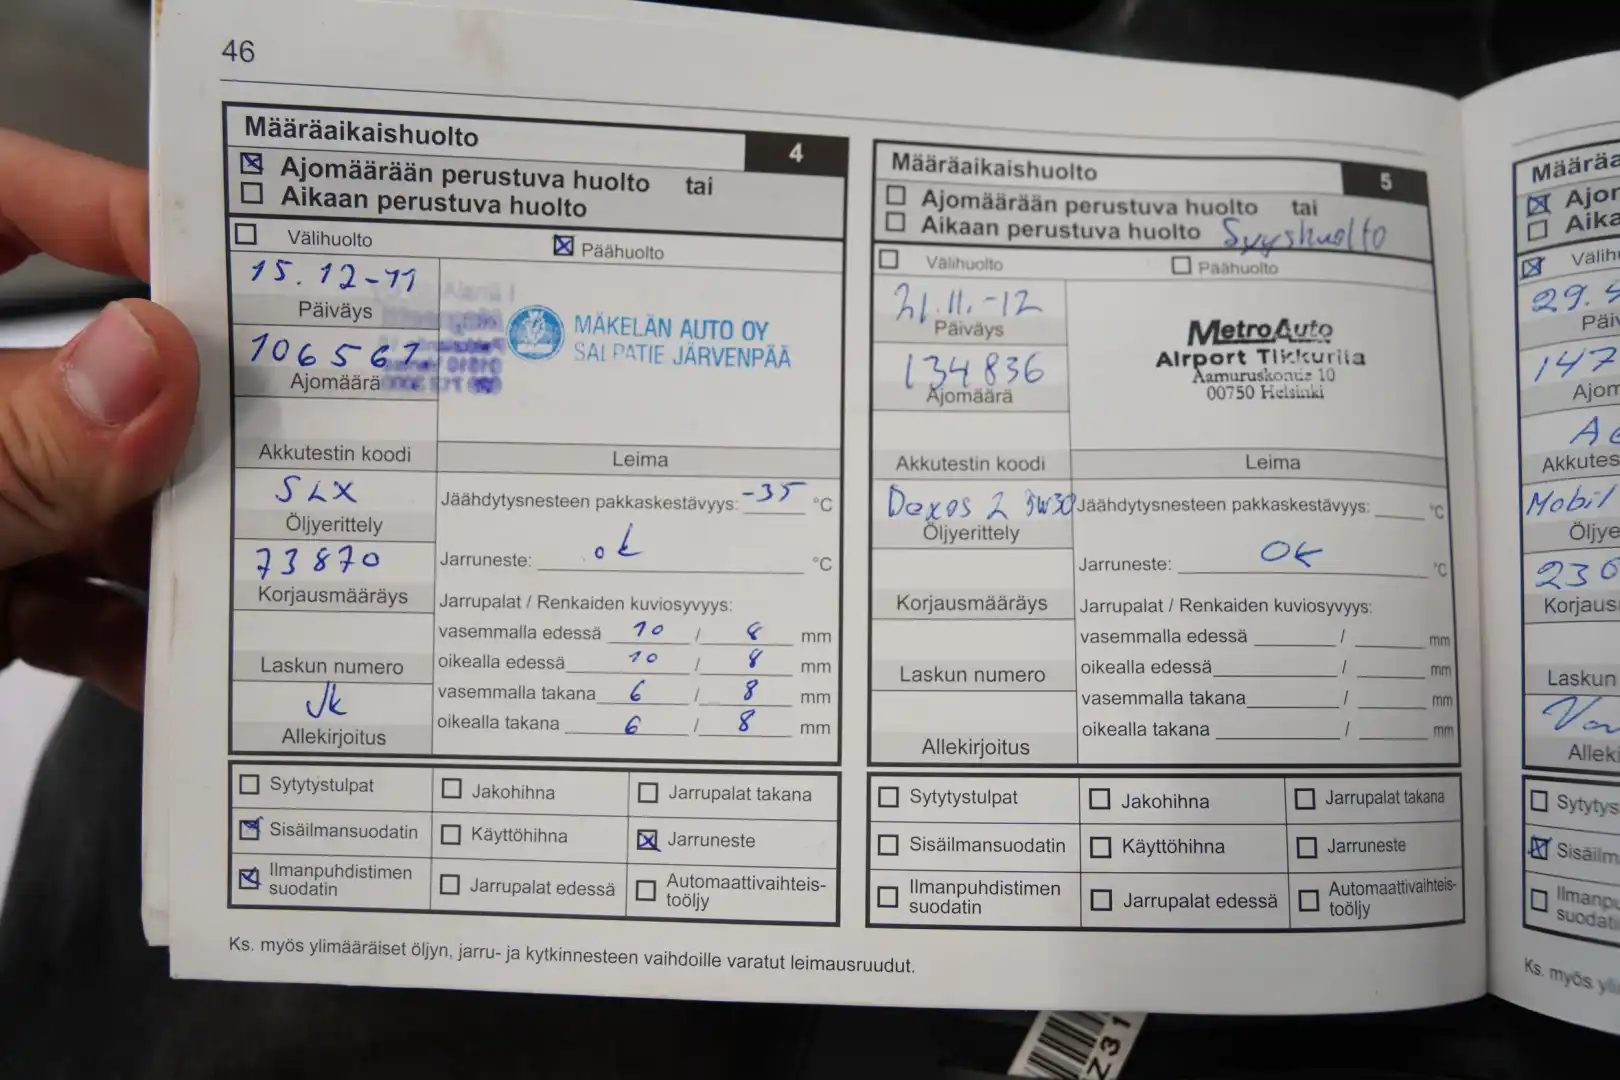 46
Määräaikaishuolto 4
☒ Ajomäärään perustuva huolto tai
☐ Aikaan perustuva huolto
☐ Välihuolto ☒ Päähuolto
15.12-11
Päiväys
106561
Ajomäärä
MÄKELÄN AUTO OY
SALPATIE JÄRVENPÄÄ
Akkutestin koodi
Leima
SLX
Öljyerittely
Jäähdytysnesteen pakkaskestävyys: -35 °C
73870
Korjausmääräys
Jarruneste: ok °C
Jarrupalat / Renkaiden kuviosyvyys:
vasemmalla edessä 10 / 8 mm
oikealla edessä 10 / 8 mm
vasemmalla takana 6 / 8 mm
oikealla takana 6 / 8 mm
Laskun numero
Jk
Allekirjoitus
☐ Sytytystulpat ☐ Jakohihna ☐ Jarrupalat takana
☒ Sisäilmansuodatin ☐ Käyttöhihna ☒ Jarruneste
☒ Ilmanpuhdistimen
suodatin
☐ Jarrupalat edessä
☐ Automaattivaihteis-
toöljy
Ks. myös ylimääräiset öljyn, jarru- ja kytkinnesteen vaihdoille varatut leimausruudut.
Määräaikaishuolto 5
☐ Ajomäärään perustuva huolto tai
☐ Aikaan perustuva huolto Syyshuolto
☐ Välihuolto ☐ Päähuolto
21.11.-12
Päiväys
134836
Ajomäärä
MetroAuto
Airport Tikkurila
Aamuruskontie 10
00750 Helsinki
Akkutestin koodi
Leima
Dexos 2 5W30
Öljyerittely
Jäähdytysnesteen pakkaskestävyys: °C
Korjausmääräys
Jarruneste: OK °C
Jarrupalat / Renkaiden kuviosyvyys:
vasemmalla edessä / mm
oikealla edessä / mm
vasemmalla takana / mm
oikealla takana / mm
Laskun numero
Allekirjoitus
☐ Sytytystulpat ☐ Jakohihna ☐ Jarrupalat takana
☐ Sisäilmansuodatin ☐ Käyttöhihna ☐ Jarruneste
☐ Ilmanpuhdistimen
suodatin
☐ Jarrupalat edessä
☐ Automaattivaihteis-
toöljy
Määrää
☒ Ajor
☐ Aika
☒ Välih
29.
Päiv
147
Ajom
Akkutes
Mobil
Öljye
230
Korjaus
Laskun
Allek
☐ Sytyts
☒ Sisäilm
☐ Ilmanpu
suodati
Ks. myös yli
Z31